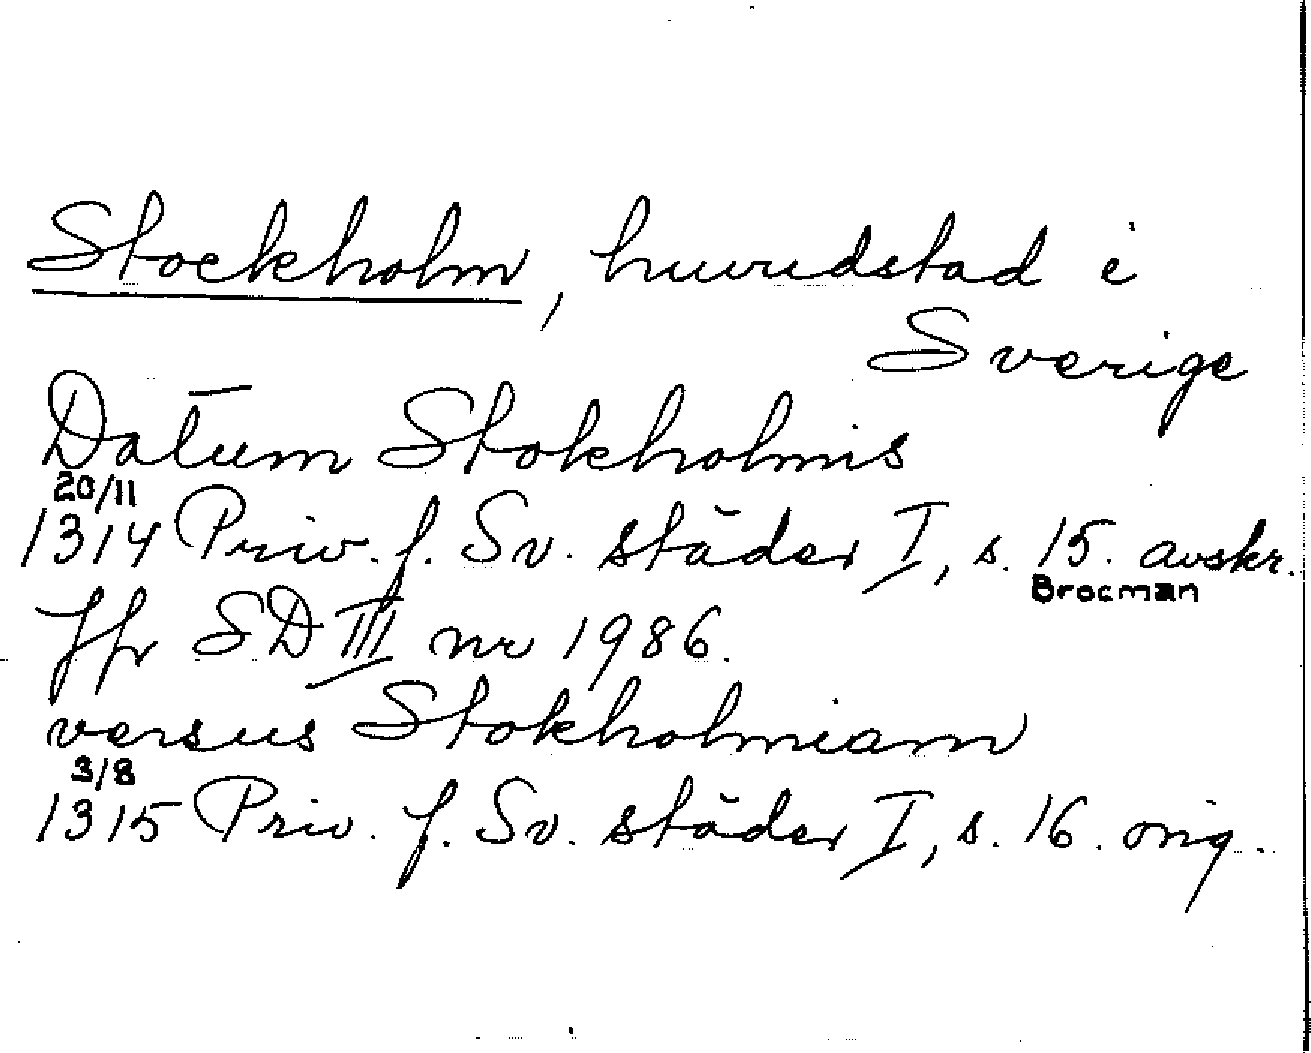 Stockholm, huvudstad i
Sverige
Datum Stokholmis
20/11
1314 Priv. f. Sv. städer I, s. 15. avskr.
Brocman
Jfr SD III nr 1986.
versus Stokholmiam
3/8
1315 Priv. f. Sv. städer I, s. 16. orig.